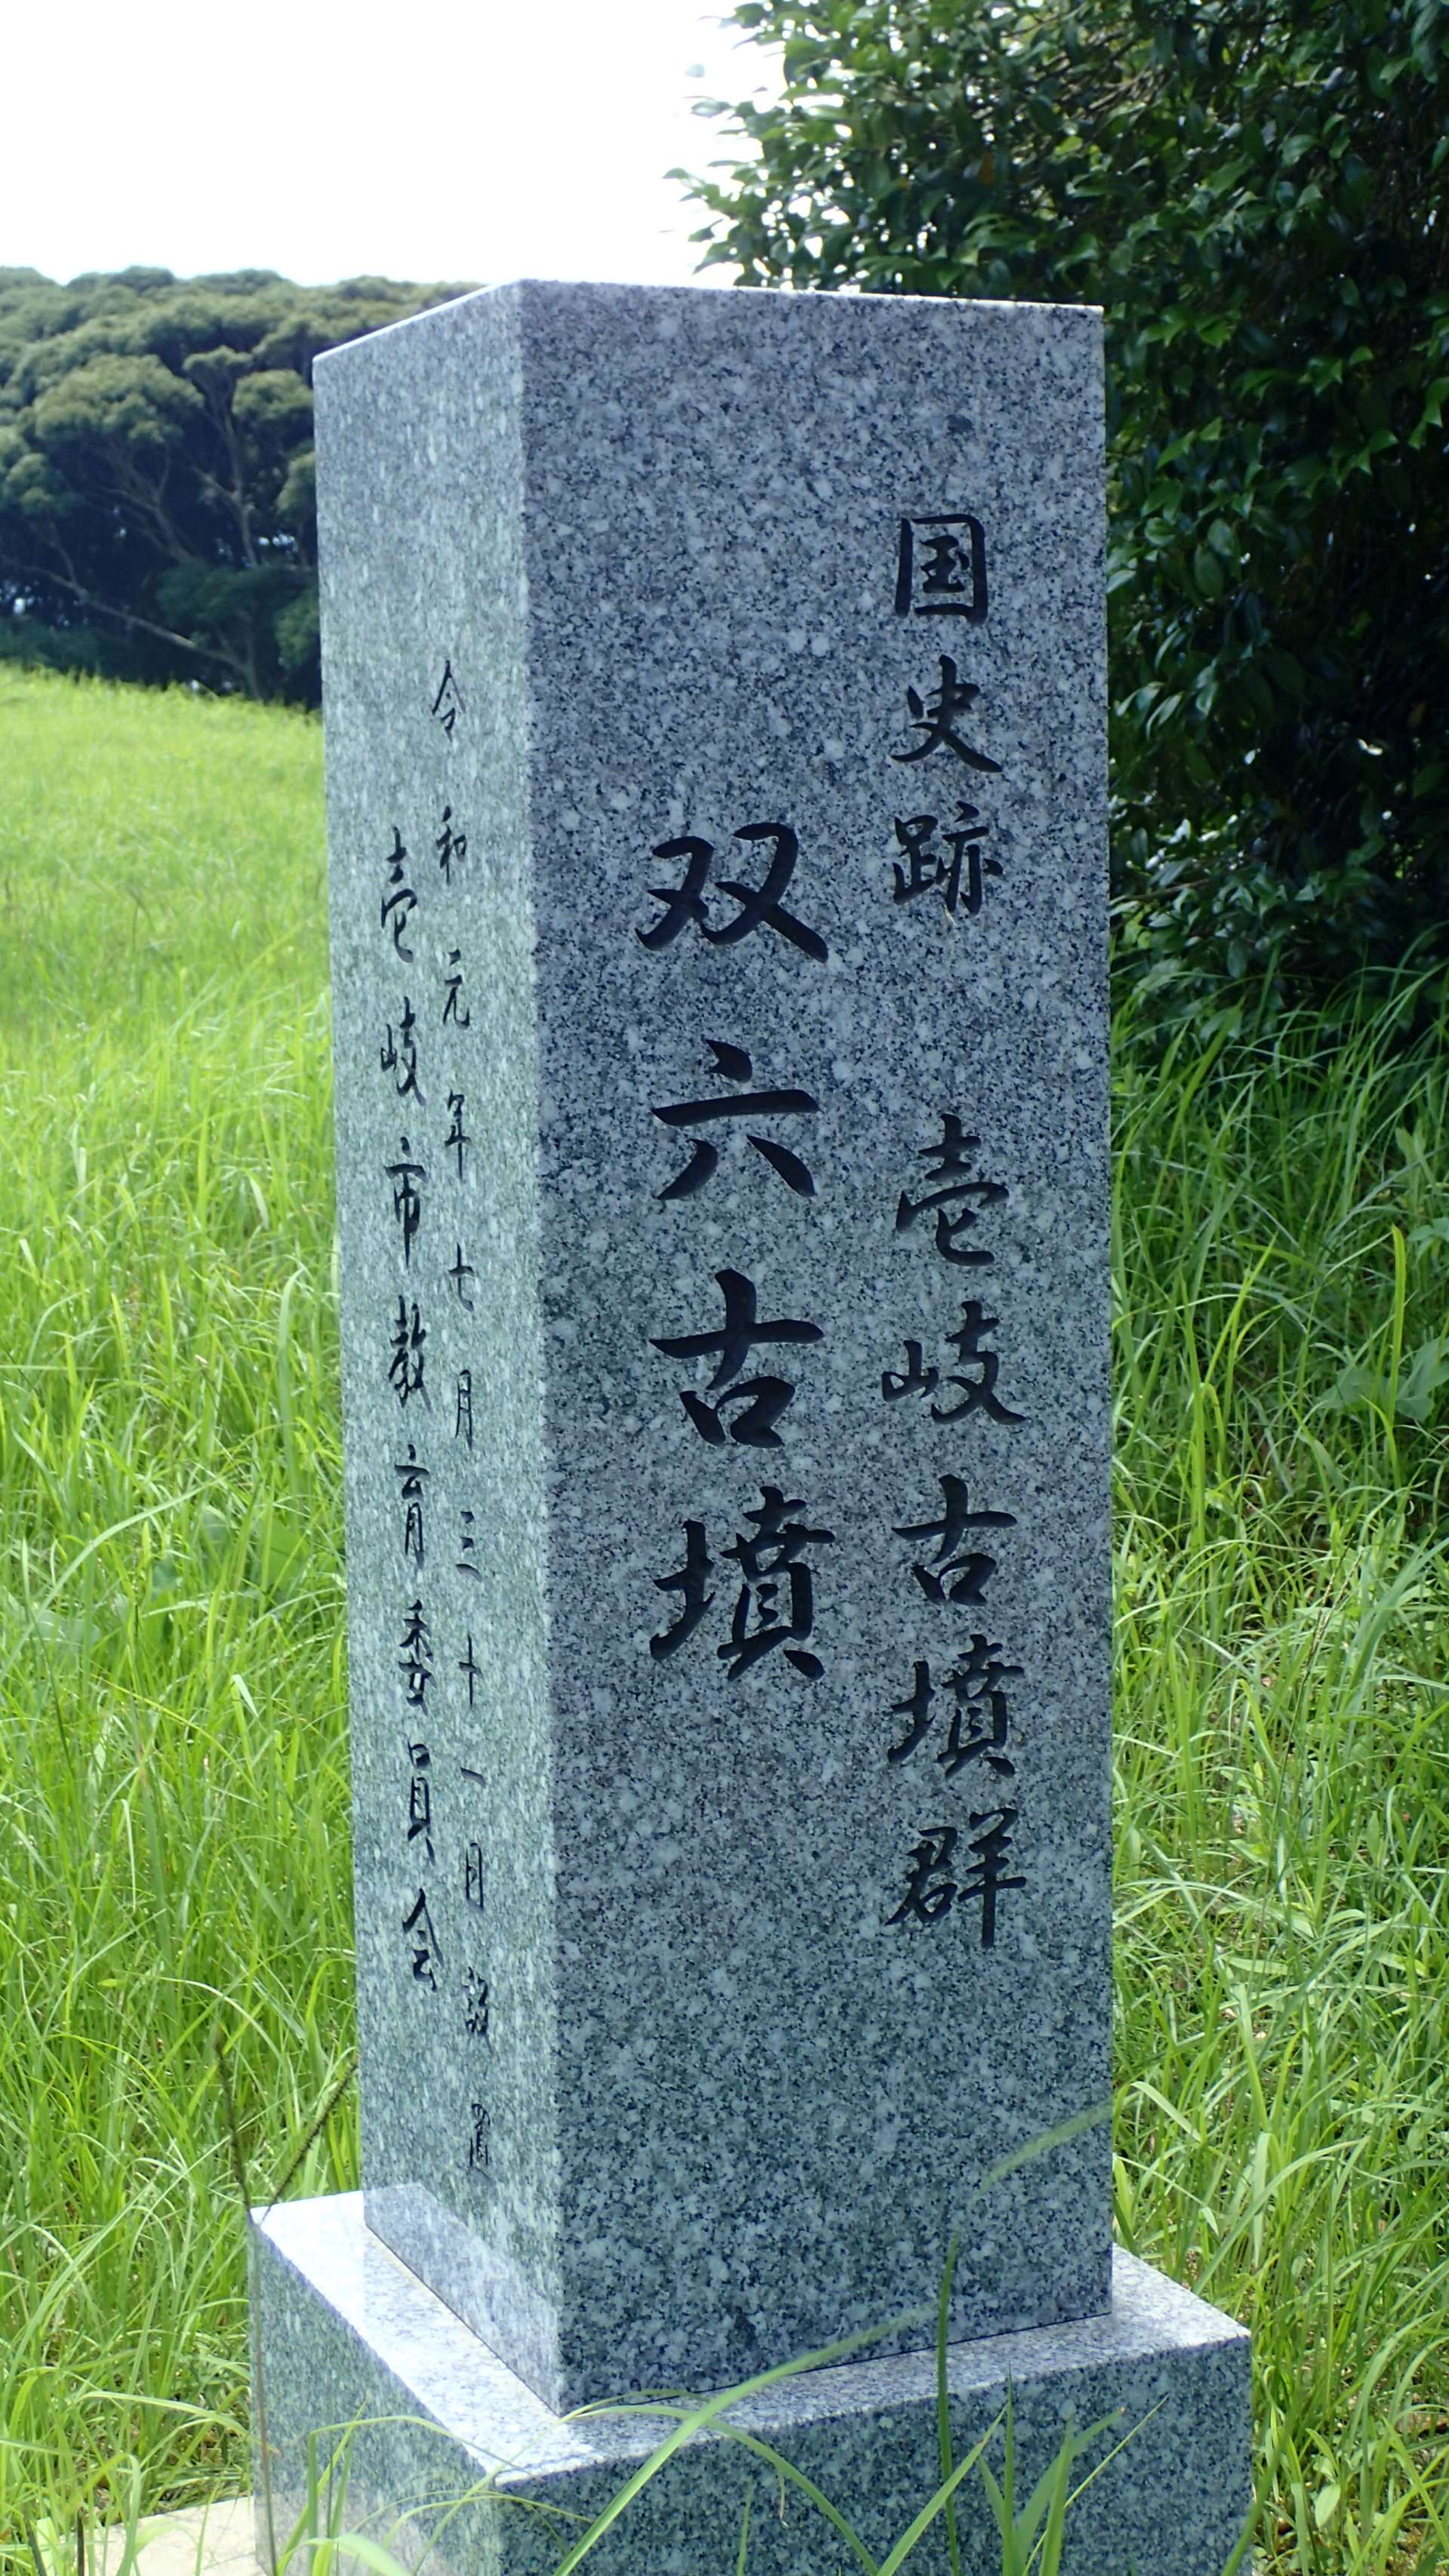 国史跡 壱岐古墳群
双六古墳
令和元年七月三十一日設置
壱岐市教育委員会